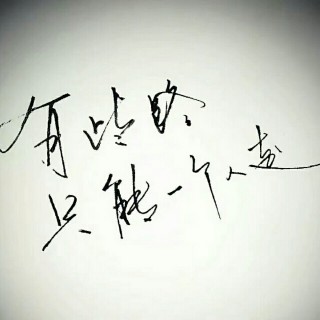 有些路
只能一个人走